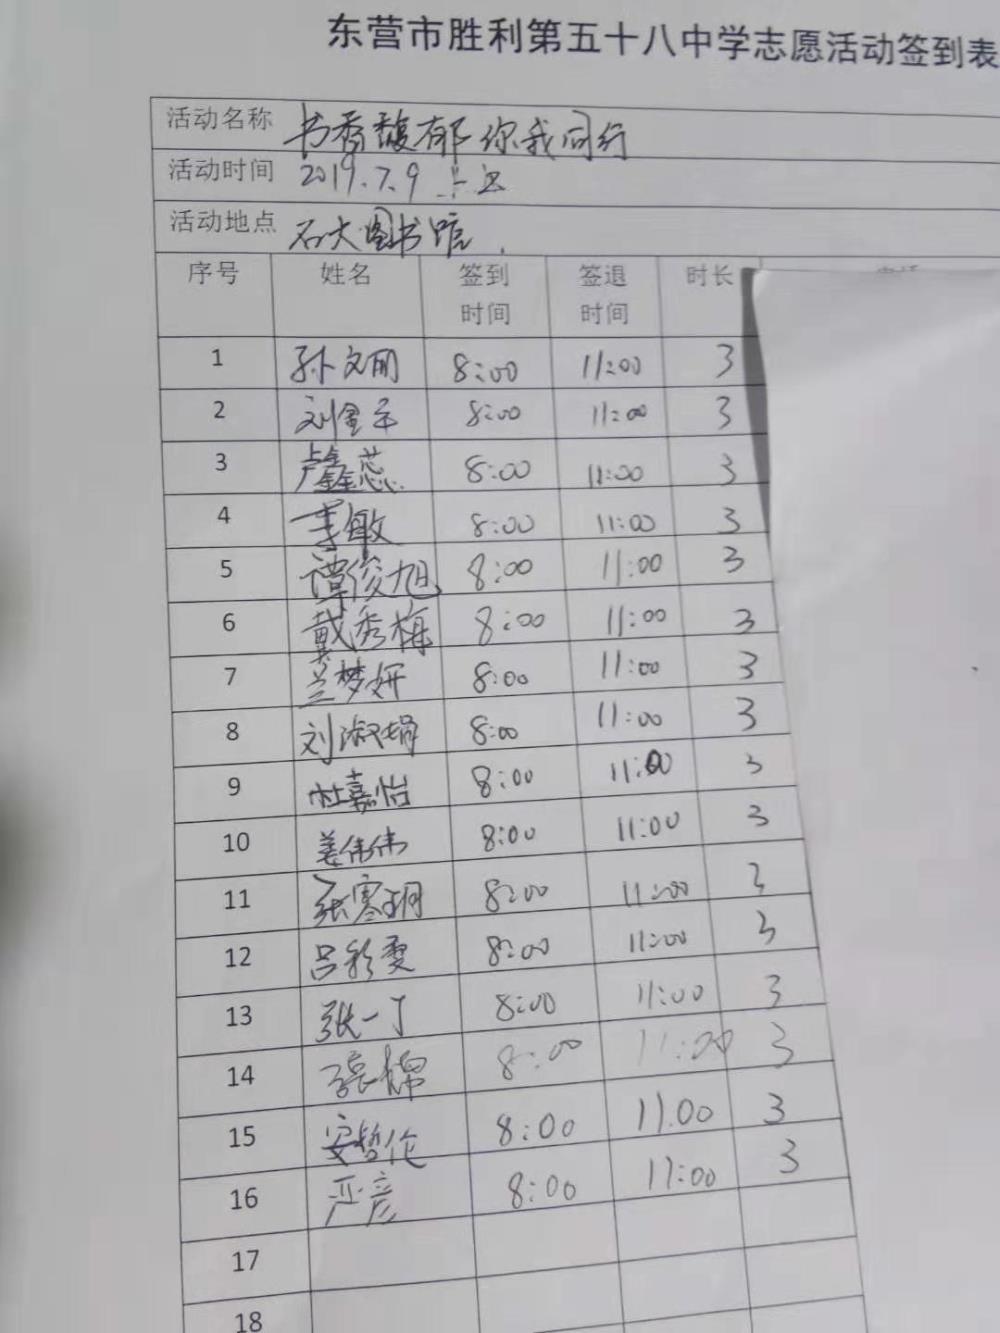 东营市胜利第五十八中学志愿活动签到表
活动名称 书香馥郁 你我同行
活动时间 2019.7.9 上午
活动地点 石大图书馆
序号 姓名 签到时间 签退时间 时长
1 孙文丽 8:00 11:00 3
2 刘金平 8:00 11:00 3
3 卢鑫蕊 8:00 11:00 3
4 李敏 8:00 11:00 3
5 谭俊旭 8:00 11:00 3
6 戴秀梅 8:00 11:00 3
7 兰梦妍 8:00 11:00 3
8 刘淑娟 8:00 11:00 3
9 杜嘉怡 8:00 11:00 3
10 姜伟伟 8:00 11:00 3
11 张寒玥 8:00 11:00 3
12 吕彩雯 8:00 11:00 3
13 张一丁 8:00 11:00 3
14 8:00 11:00 3
15 安哲伦 8:00 11.00 3
16 严彦 8:00 11:00 3
17
18